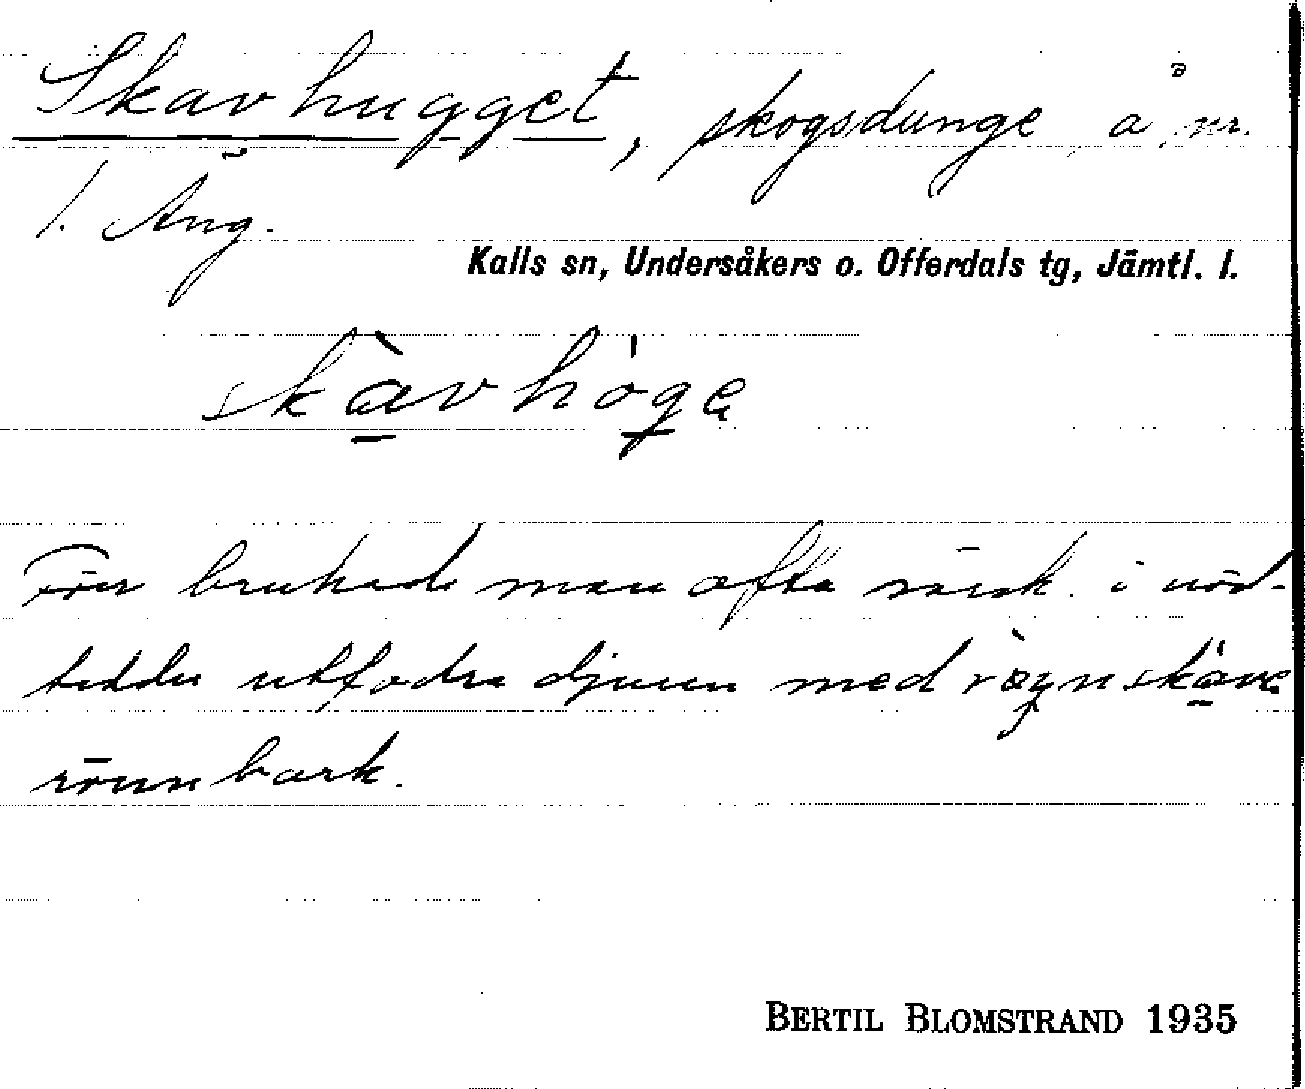 Skavhugget, skogsdunge å nr.
1. Äng.
Kalls sn, Undersåkers o. Offerdals tg, Jämtl. l.
skàvhóge
Förr brukade man ofta särsk. i nöd-
tider utfodra djuren med røynskave
rönnbark.
BERTIL BLOMSTRAND 1935